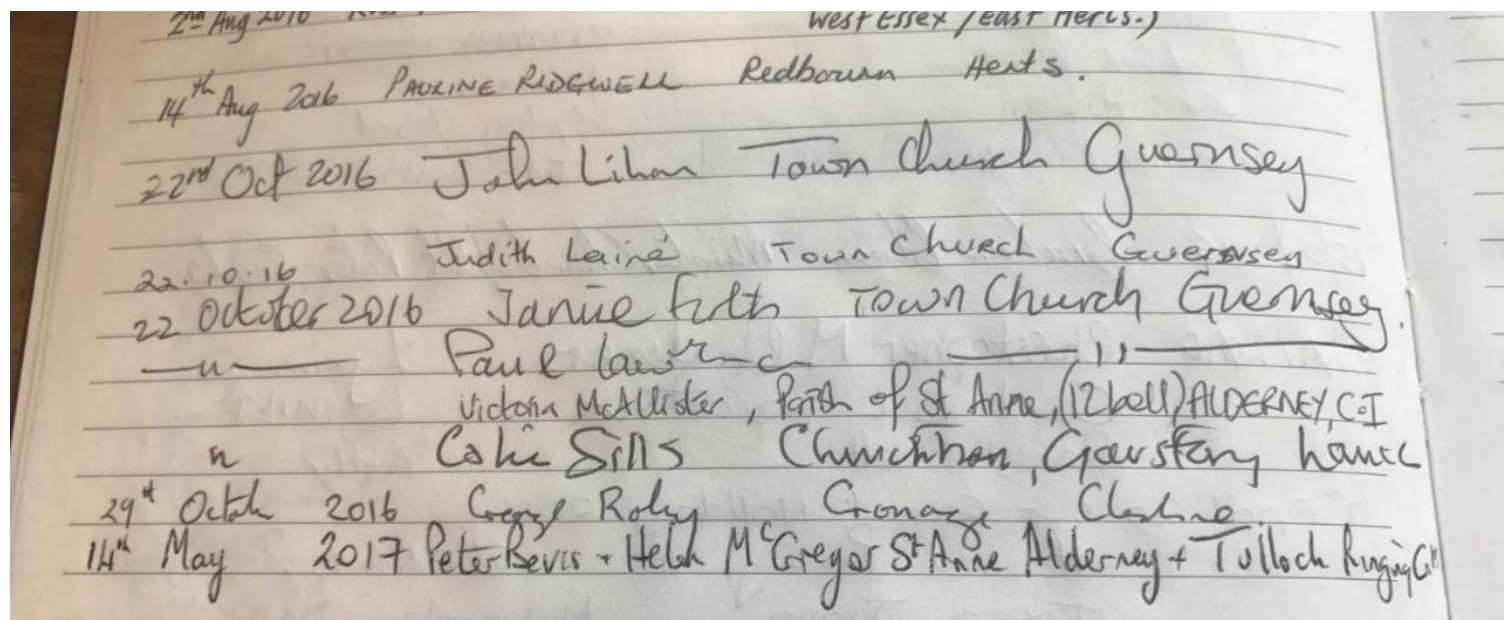 2nd Aug 2016 West Essex / East Herts.)
14th Aug 2016 PAULINE RIDGWELL Redbourn Herts.
22nd Oct 2016 John Lihou Town Church Guernsey
22.10.16 Judith Lainé Town Church Guernsey
22 October 2016 Janie Town Church Guernsey.
—"— Paul —— ,, ——
Victoria McAllister, Parish of St Anne, (12 bell) ALDERNEY, C.I
" Colin Sills Churchtown, Garstang Lancs
29th 2016 Roby
14th May 2017 Peter Bevis + Helen McGregor St Anne Alderney + Tulloch Ringing